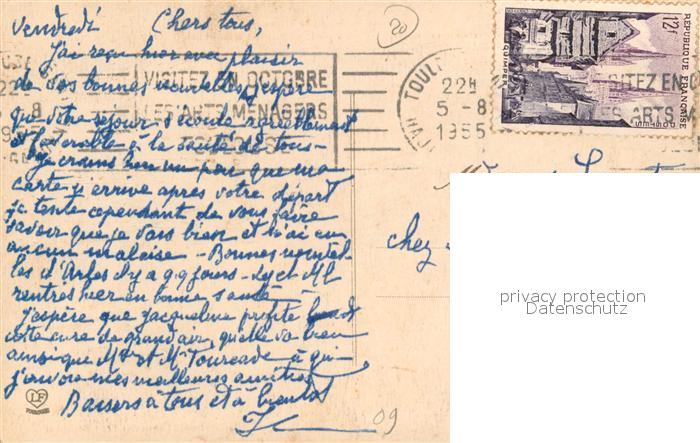 Vendredi Chers tous,
J'ai reçu hier avec plaisir
de vos bonnes nouvelles j'espère
que votre séjour s'écoule agréablement
et favorable à la santé de tous -
Je crains bien un peu que ma
carte y arrive après votre départ
je tente cependant de vous faire
savoir que je vais bien et n'ai eu
aucun malaise - Bonnes nouvel-
les d'Arles il y a 9 jours - et
rentrés hier en bonne santé
J'espère que Jacqueline profite
cette cure de grand air, qu'elle va bien
ainsi que Mr et Me Tourcade à qui
j'envoie mes meilleures amitiés
Baisers à tous et à bientôt
20
VISITEZ EN OCTOBRE
LES ARTS MENAGERS
22H
5-8
1955
12F
REPUBLIQUE FRANÇAISE
QUIMPER
POSTES
ITEZ EN OC
ES ARTS M
chez
privacy protection
Datenschutz
LF
TOULOUSE
09